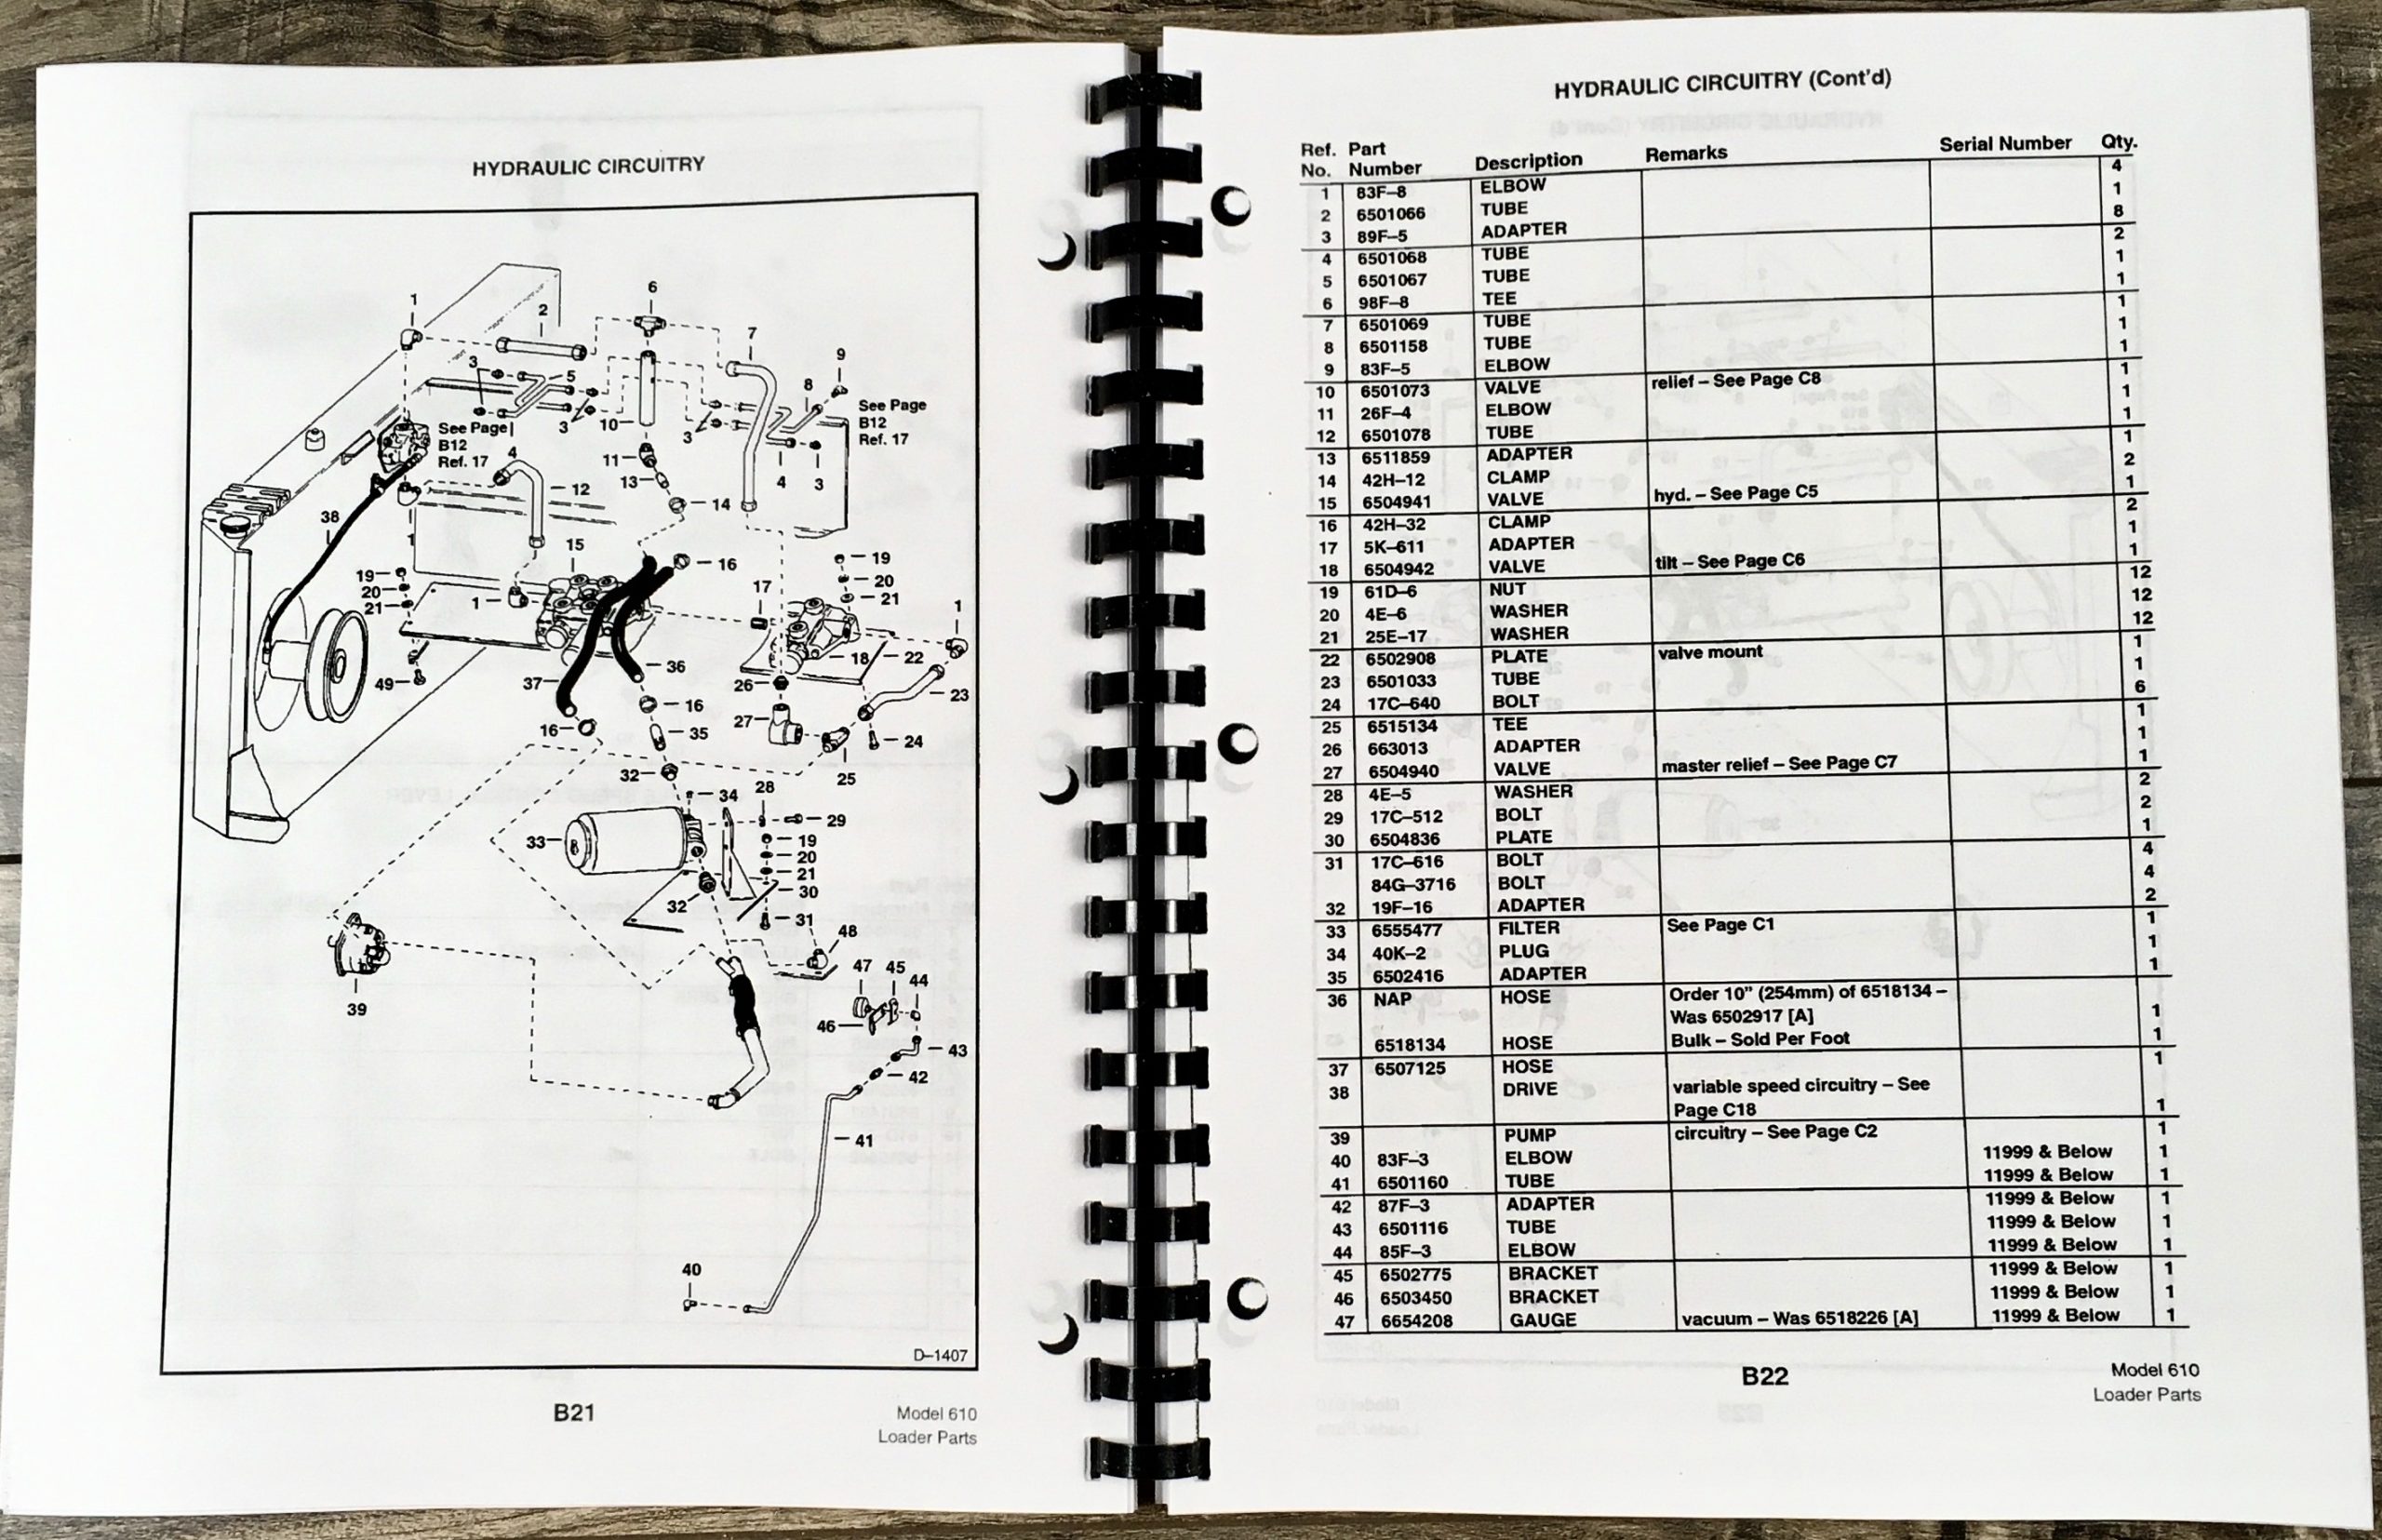 HYDRAULIC CIRCUITRY
1
2
6
7
9
3
5
8
See Page
B12
Ref. 17
See Page
B12
Ref. 17
3
10
3
4
11
13
4
3
12
14
38
1
15
16
17
19
20
21
19
20
21
1
1
18
22
36
37
49
26
23
16
35
27
16
24
25
32
28
34
29
33
19
20
21
30
32
31
48
47
45
44
46
39
43
42
41
40
D–1407
B21
Model 610
Loader Parts
HYDRAULIC CIRCUITRY (Cont'd)
Ref. Part
No. Number Description Remarks Serial Number Qty.
1 83F–8 ELBOW 4
2 6501066 TUBE 1
3 89F–5 ADAPTER 8
4 6501068 TUBE 2
5 6501067 TUBE 1
6 98F–8 TEE 1
7 6501069 TUBE 1
8 6501158 TUBE 1
9 83F–5 ELBOW 1
10 6501073 VALVE relief – See Page C8 1
11 26F–4 ELBOW 1
12 6501078 TUBE 1
13 6511859 ADAPTER 1
14 42H–12 CLAMP 2
15 6504941 VALVE hyd. – See Page C5 1
16 42H–32 CLAMP 2
17 5K–611 ADAPTER 1
18 6504942 VALVE tilt – See Page C6 1
19 61D–6 NUT 12
20 4E–6 WASHER 12
21 25E–17 WASHER 12
22 6502908 PLATE valve mount 1
23 6501033 TUBE 1
24 17C–640 BOLT 6
25 6515134 TEE 1
26 663013 ADAPTER 1
27 6504940 VALVE master relief – See Page C7 1
28 4E–5 WASHER 2
29 17C–512 BOLT 2
30 6504836 PLATE 1
31 17C–616 BOLT 4
84G–3716 BOLT 4
32 19F–16 ADAPTER 2
33 6555477 FILTER See Page C1 1
34 40K–2 PLUG 1
35 6502416 ADAPTER 1
36 NAP HOSE Order 10" (254mm) of 6518134 –
Was 6502917 [A] 1
6518134 HOSE Bulk – Sold Per Foot 1
37 6507125 HOSE 1
38 DRIVE variable speed circuitry – See
Page C18 1
39 PUMP circuitry – See Page C2 1
40 83F–3 ELBOW 11999 & Below 1
41 6501160 TUBE 11999 & Below 1
42 87F–3 ADAPTER 11999 & Below 1
43 6501116 TUBE 11999 & Below 1
44 85F–3 ELBOW 11999 & Below 1
45 6502775 BRACKET 11999 & Below 1
46 6503450 BRACKET 11999 & Below 1
47 6654208 GAUGE vacuum – Was 6518226 [A] 11999 & Below 1
B22
Model 610
Loader Parts